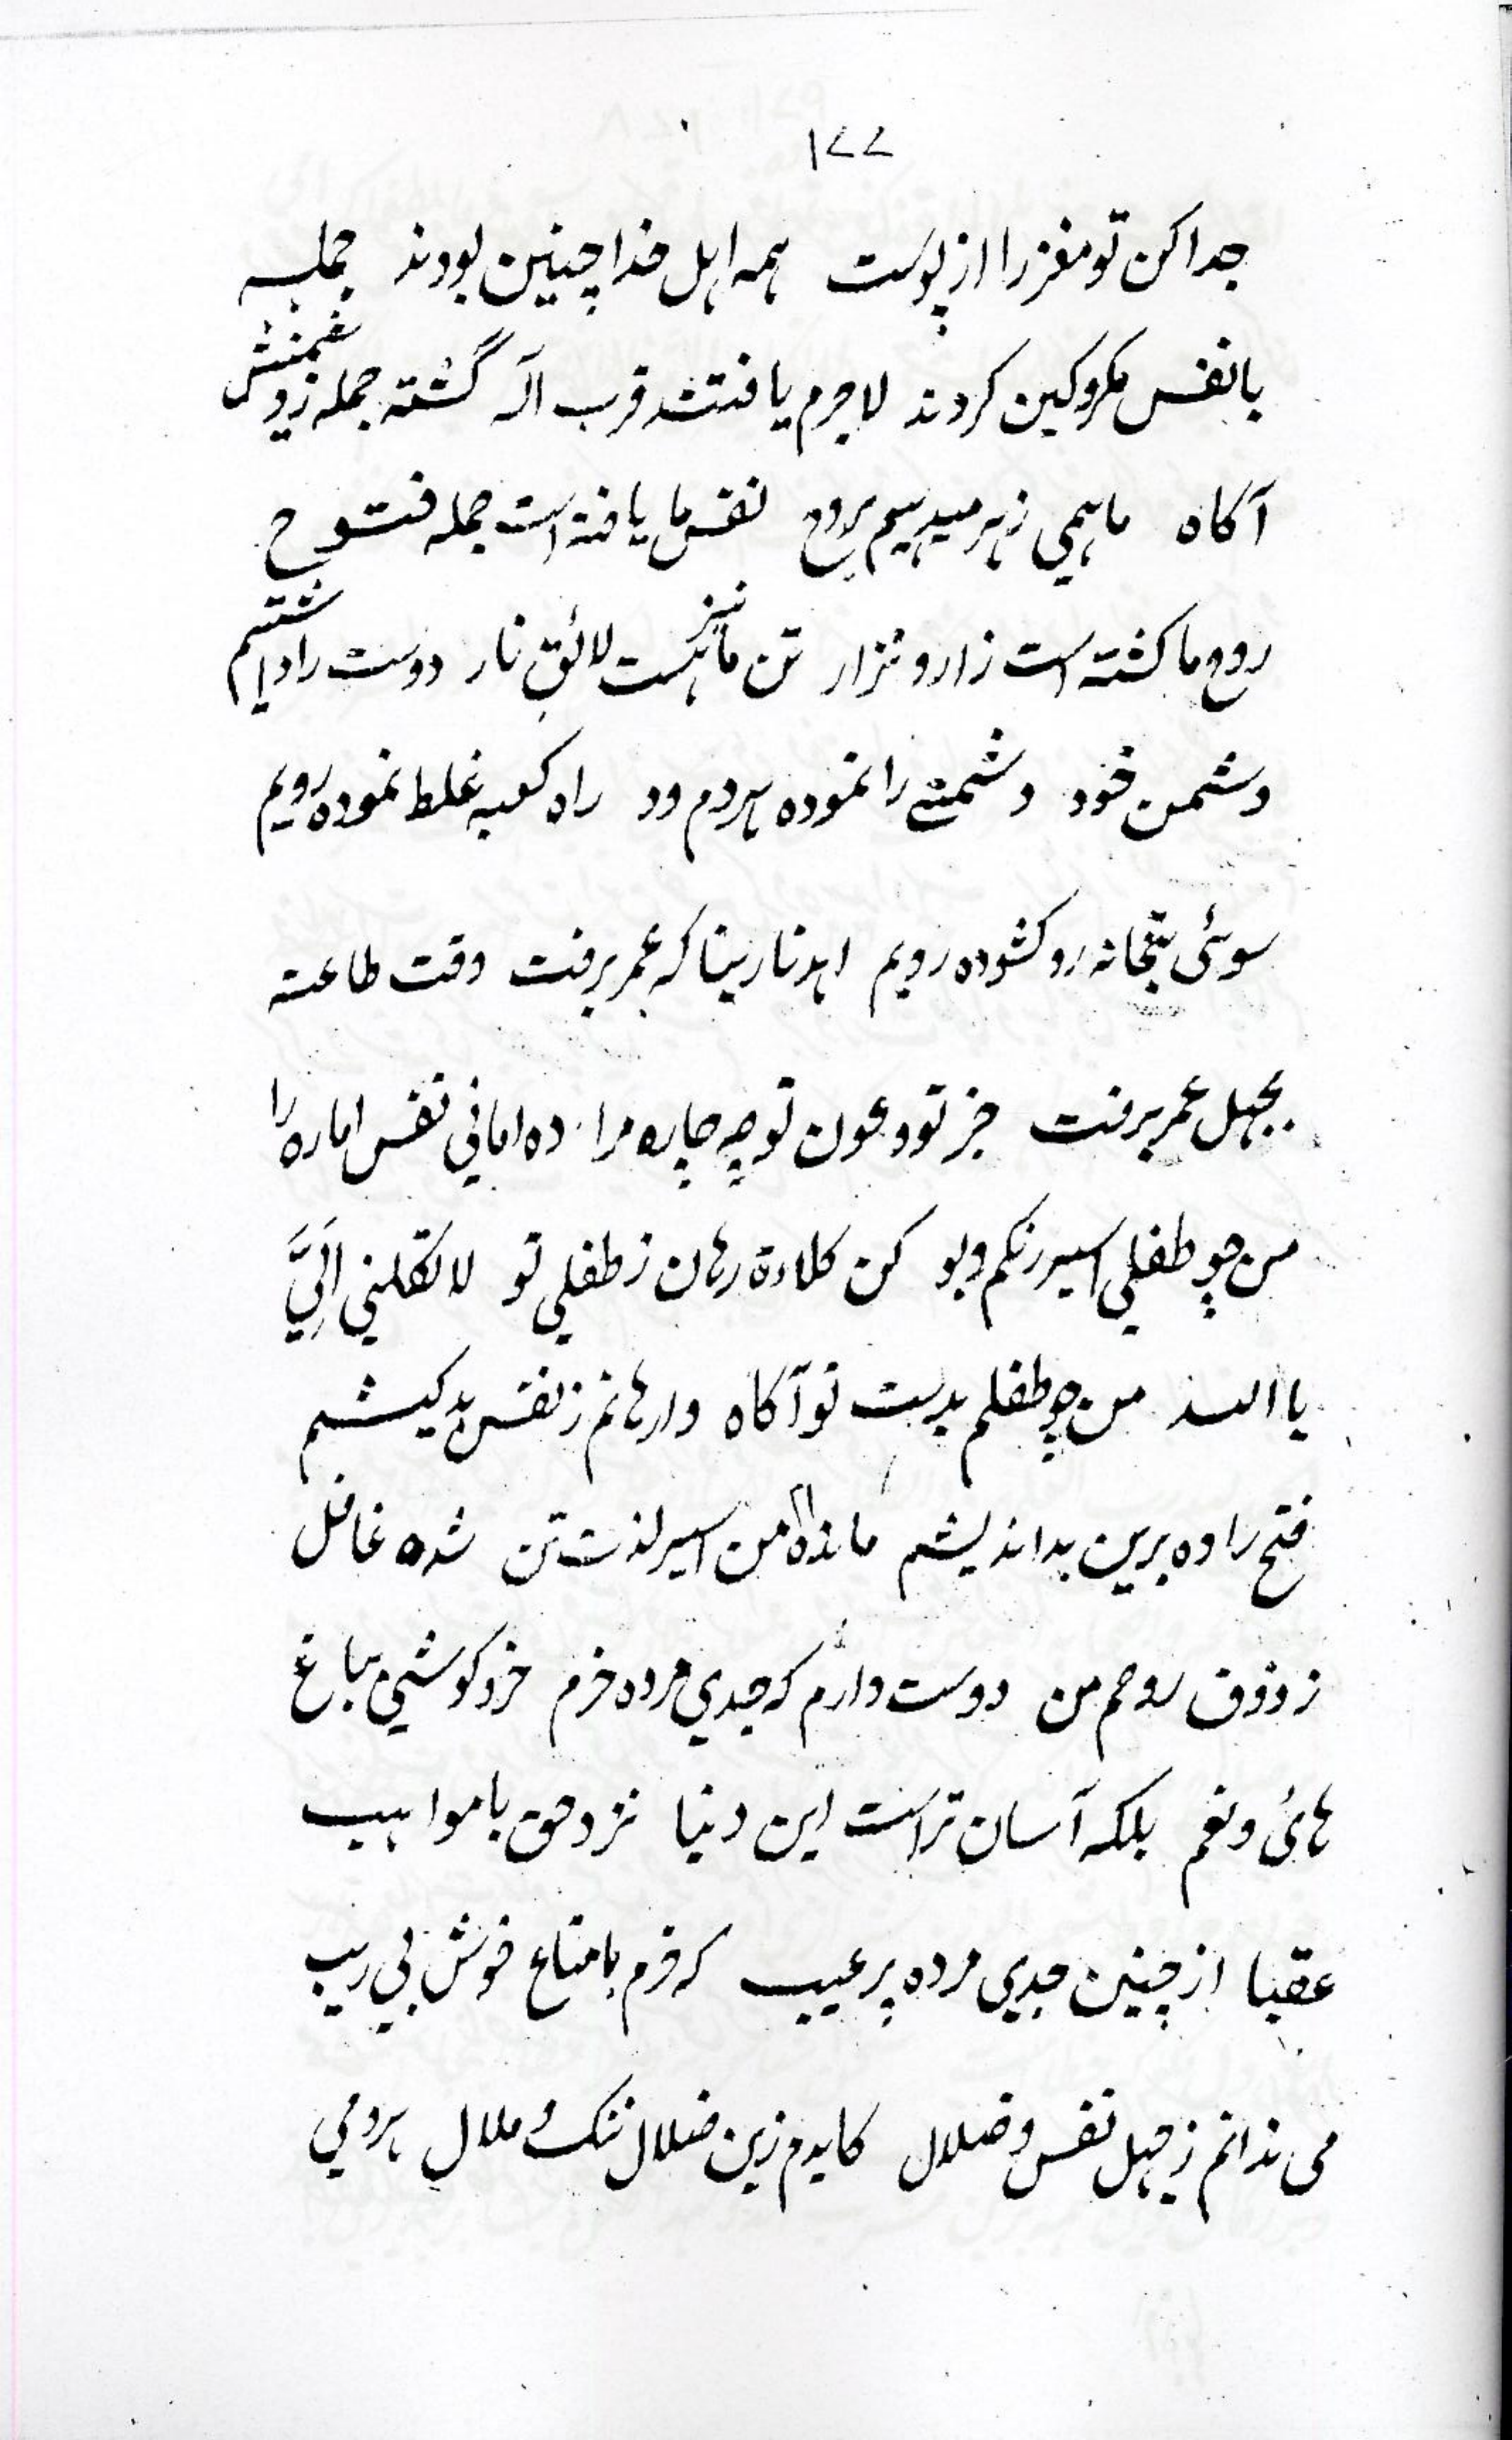 ۱۷۷
جدا کن تو مغز را از پوست همه اهل خدا چنین بودند جمله
با نفس مکر و کین کردند لاجرم یافتند قرب اله گشته جمله ز دشمنش
آکاه ما همی زهر میدهیم بروح نفس ما یافته است جمله فتوح
روح ما کشته است زار و نزار تن ما نیز هست لائق نار دوست را داشتیم
دشمن خود دشمنے را نموده بمردم ود راه کعبه غلط نموده رویم
سوئی بتخانه رو کشوده رویم اهدنا ربنا که عمر برفت وقت طاعته
بجهل عمر برفت جز تو و عون تو چه چاره مرا ده امانی نفس اماره را
من چو طفلی اسیر رنکم و بو کن کلاءة رهان ز طفلی تو لا تکلنی الَیَّ
یا الله من چو طفلم بدست تو آکاه وارهانم ز نفس بد کیشم
فتح را ده برین بداندیشم مانده ام من اسیر لذت تن شده غافل
ز ذوق روحم من دوست دارم که جدی مرده خرم خرد کوشی بباغ
هائ و نعم بلکه آسان تر است این دنیا نزد حق با مواهب
عقبا از چنین جدی مرده پر عیب که خرم با متاع خوش بی ریب
می ندانم ز جهل نفس و ضلال کایدم زین ضلال ننک و ملال هر دمی